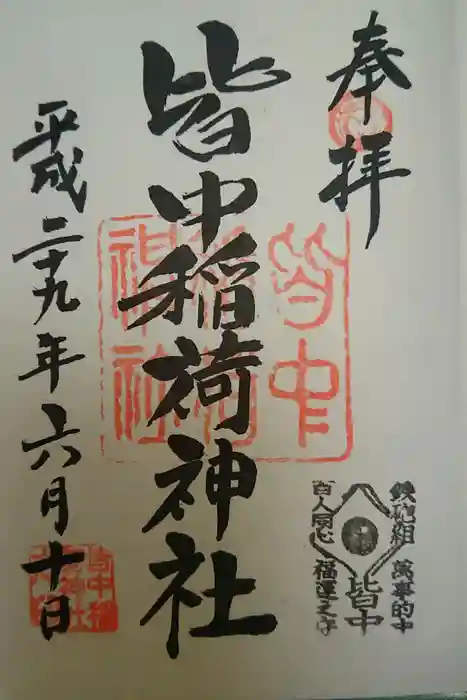 奉拝
皆中稲荷神社
平成二十九年六月十日
皆中
稲荷
神社
鉄砲組
百人同心
萬事的中
福運之守
皆中